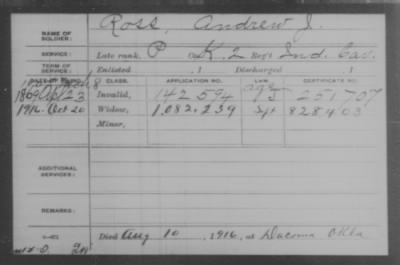 NAME OF SOLDIER: Ross, Andrew J.
SERVICE: Late rank, P Co. K. 2 Reg't Ind. Cav.
TERM OF SERVICE: Enlisted , 1 Discharged , 1
DATE OF FILING. CLASS. APPLICATION NO. LAW. CERTIFICATE NO.
1869 23 Invalid, 142.594 251707
1916 Oct 20 Widow, 1,082,239 828903
Minor,
ADDITIONAL SERVICES:
REMARKS:
Died Aug 10, 1916, at Dacoma Okla